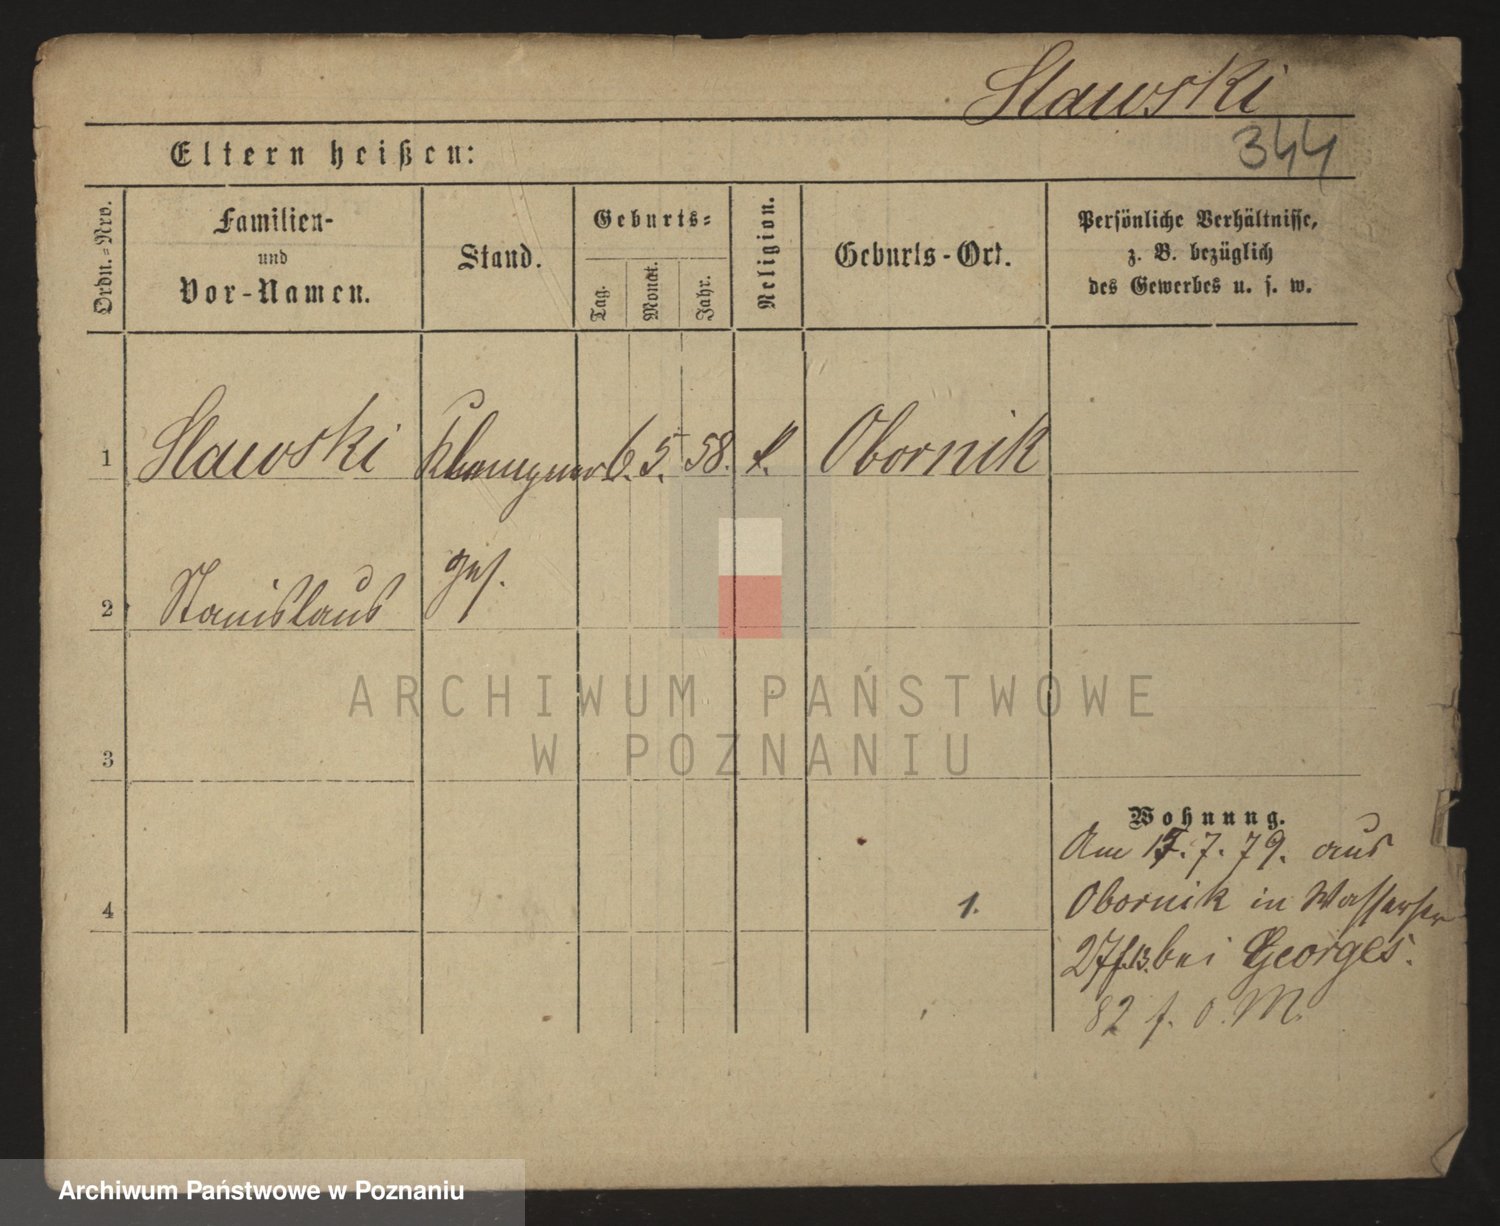 Slawski
344
Eltern heißen:
Ordn.-Nro.
Familien-
und
Vor-Namen.
Stand.
Geburts-
Tag.
Monat.
Jahr.
Religion.
Geburts-Ort.
Persönliche Verhältnisse,
z. B. bezüglich
des Gewerbes u. s. w.
1 Slawski Klempner 6. 5. 58. k. Obornik
2 Stanislaus ges.
3
ARCHIWUM PAŃSTWOWE
W POZNANIU
Wohnung.
Am 7. 79. aus
4 1. Obornik in Wasserstr
27 bei Georges.
82 f. o. M.
Archiwum Państwowe w Poznaniu